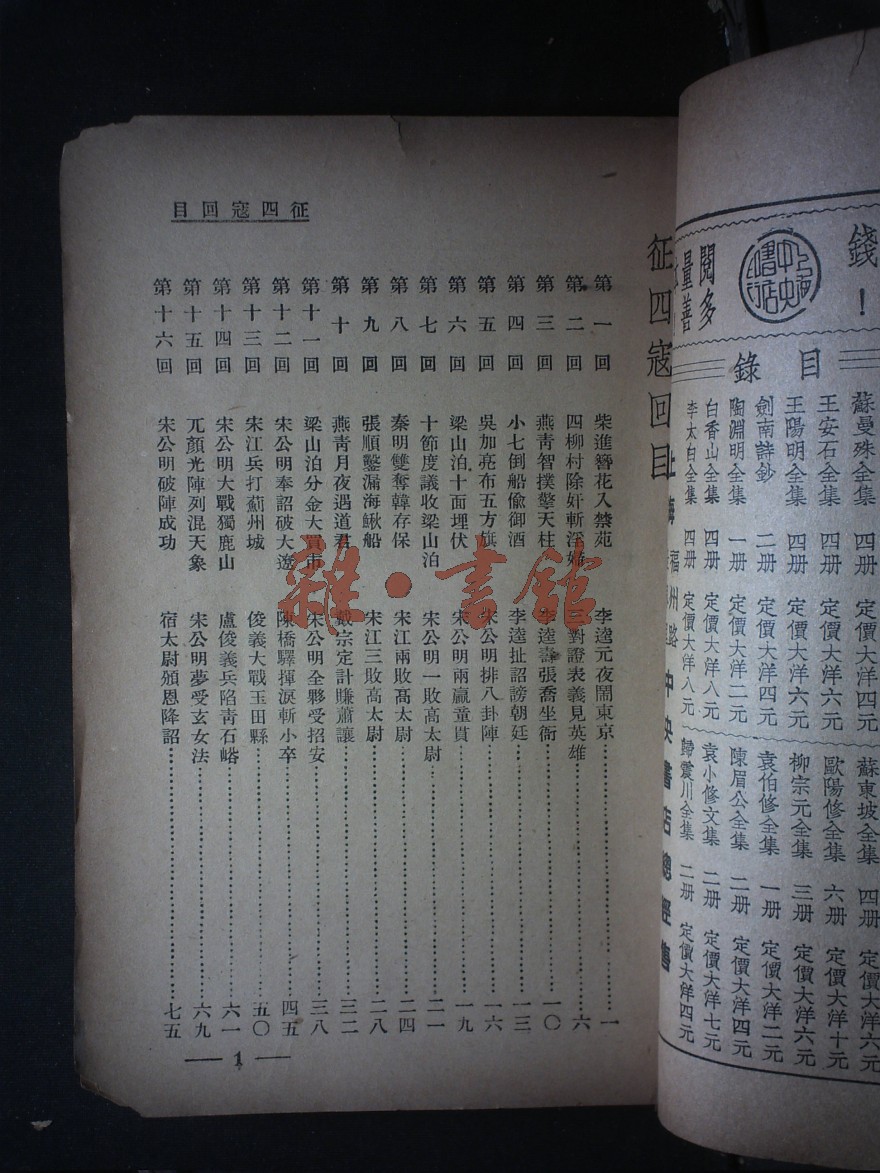 征四寇回目
征四寇回目
第一回 柴進簪花入禁苑 李逵元夜鬧東京 一
第二回 四柳村除奸斬淫婦 雙對證表義見英雄 六
第三回 燕靑智撲擎天柱 李逵喬張喬坐衙 一〇
第四回 小七倒船偸御酒 李逵扯詔謗朝廷 一三
第五回 吳加亮布五方旗 宋公明排八卦陣 一六
第六回 梁山泊十面埋伏 宋公明兩贏童貫 一九
第七回 十節度議收梁山泊 宋公明一敗高太尉 二一
第八回 秦明雙奪韓存保 宋江兩敗高太尉 二四
第九回 張順鑿漏海鰍船 宋江三敗高太尉 二八
第十回 燕靑月夜遇道君 戴宗定計賺蕭讓 三二
第十一回 梁山泊分金大買市 宋公明全夥受招安 三八
第十二回 宋公明奉詔破大遼 陳橋驛揮淚斬小卒 四五
第十三回 宋江兵打薊州城 俊義大戰玉田縣 五〇
第十四回 宋公明大戰獨鹿山 盧俊義兵陷靑石峪 六一
第十五回 兀顏光陣列混天象 宋公明夢受玄女法 六九
第十六回 宋公明破陣成功 宿太尉頒恩降詔 七五
1
錢！
上海中央書店印行
閱多
量善
目錄
蘇曼殊全集 四册 定價大洋四元
王安石全集 四册 定價大洋六元
王陽明全集 四册 定價大洋六元
劍南詩鈔 二册 定價大洋四元
陶淵明全集 一册 定價大洋二元
白香山全集 四册 定價大洋八元
李太白全集 四册 定價大洋八元
蘇東坡全集 四册 定價大洋六元
歐陽修全集 六册 定價大洋十元
柳宗元全集 三册 定價大洋六元
袁伯修全集 一册 定價大洋二元
陳眉公全集 二册 定價大洋四元
袁小修文集 二册 定價大洋七元
歸震川全集 二册 定價大洋四元
上海福州路中央書店總經售
雜·書館